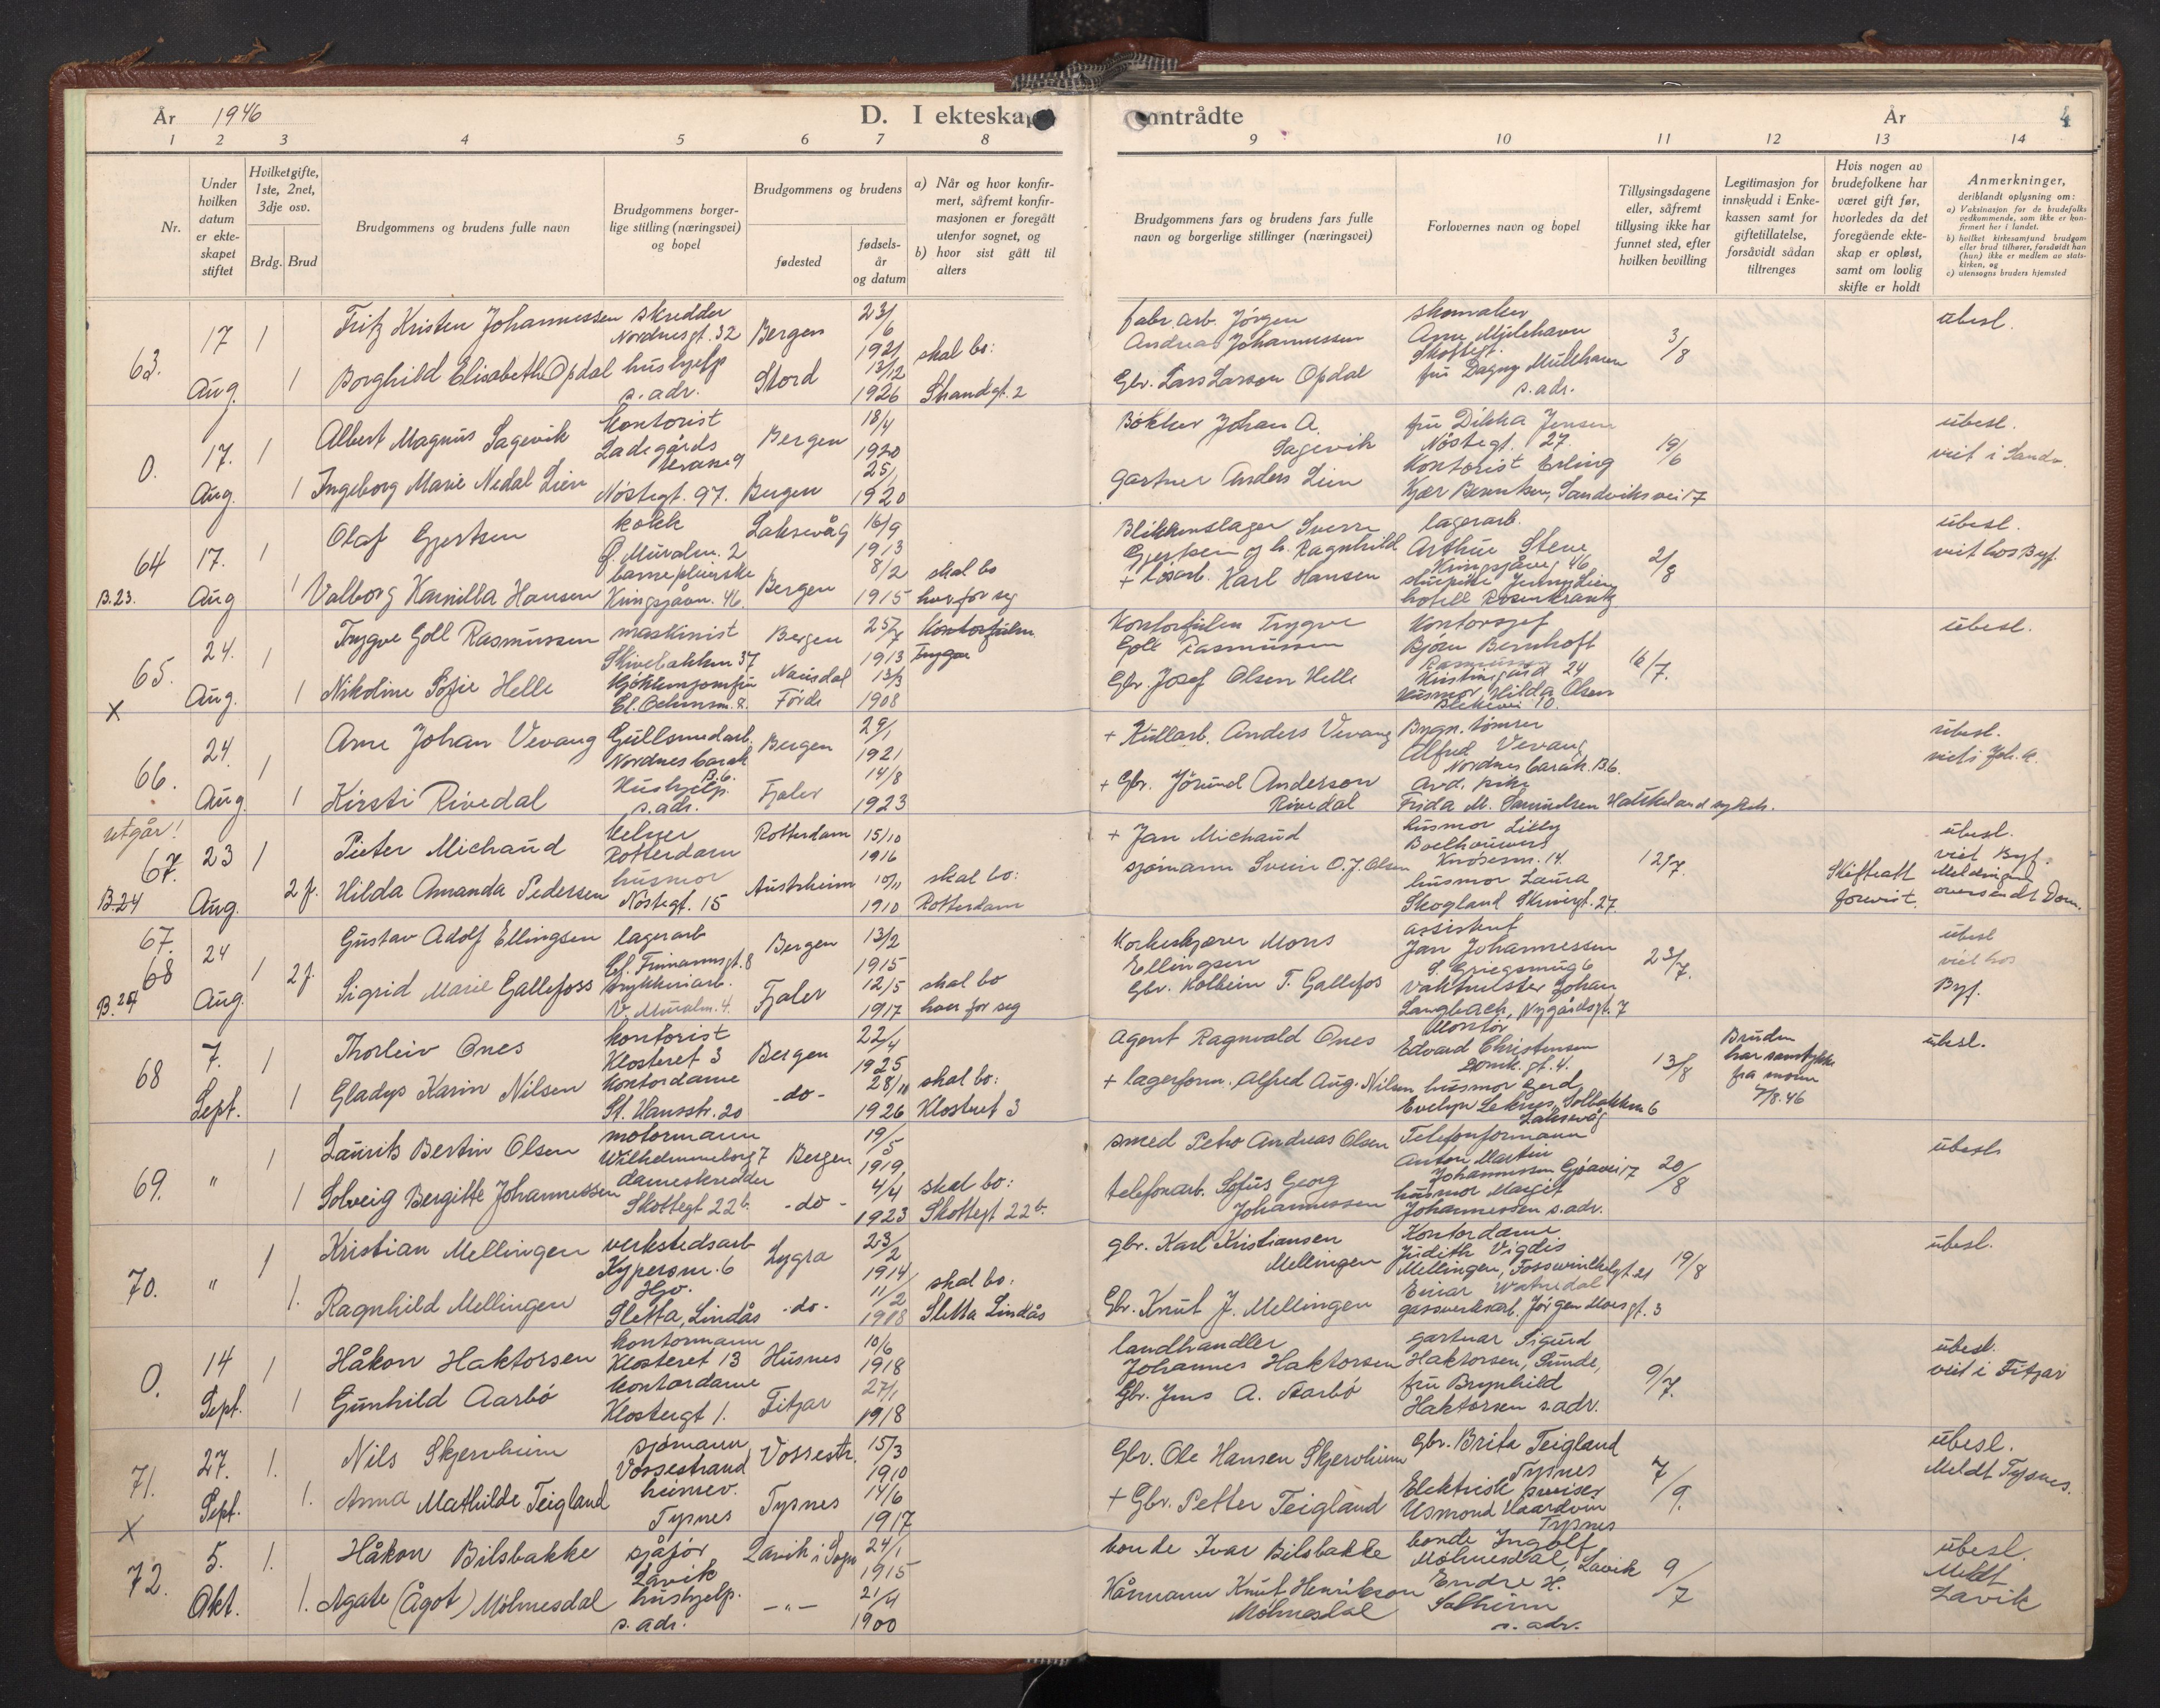 År 1946
D. I ekteskap
inntrådte
År
4
1 2 3 4 5 6 7 8 9 10 11 12 13 14
Nr.
Under hvilken datum er ekteskapet stiftet
Hvilket gifte, 1ste, 2net, 3dje osv.
Brdg. Brud
Brudgommens og brudens fulle navn
Brudgommens borgerlige stilling (næringsvei) og bopel
Brudgommens og brudens
fødested
fødselsår og datum
a) Når og hvor konfirmert, såfremt konfirmasjonen er foregått utenfor sognet, og
b) hvor sist gått til alters
Brudgommens fars og brudens fars fulle navn og borgerlige stillinger (næringsvei)
Forlovernes navn og bopel
Tillysingsdagene eller, såfremt tillysing ikke har funnet sted, efter hvilken bevilling
Legitimasjon for innskudd i Enkekassen samt for giftetillatelse, forsåvidt sådan tiltrenges
Hvis nogen av brudefolkene har været gift før, hvorledes da det foregående ekteskap er opløst, samt om lovlig skifte er holdt
Anmerkninger, deriblandt oplysning om:
a) Vaksinasjon for de brudefolks vedkommende, som ikke er konfirmert her i landet.
b) hvilket kirkesamfund brudgom eller brud tilhører, forsåvidt han (hun) ikke er medlem av statskirken, og
c) utensogns bruders hjemsted
63. 17 Aug. 1 1
Fritz Kristen Johannessen skredder Nordnesgt. 32 Bergen 23/6 1921
Borghild Elisabeth Opdal hushjelp s. adr. Stord 13/12 1926
skal bo: Strandgt. 2
fabr. arb. Jörgen Andreas Johannessen
Gbr. Lars Larson Opdal
skomaker Arne Mülehavn Skottegt.
frü Dagny Mülehavn s. adr.
3/8
übesl.
0. 17. Aug. 1 1
Albert Magnus Sagevik kontorist Ladegårds terrasse 9 Bergen 18/4 1920
Ingeborg Marie Nedal Lien Nöstegt. 97. Bergen 25/1 1920
Bökker Johan A. Sagevik
Gartner Anders Lien
frü Dikka Jensen Nöstegt. 27.
Kontorist Erling Kjær Berntsen, Sandviksvei 17
19/6
übesl.
viet i Sandv.
64 B.23. 17. Aug 1 1
Olaf Gjertsen kokk Ö. Müralm. 2 Laksevåg 16/9 1913
Valborg Kamilla Hansen barnepleierske Kringsjåvn. 46. Bergen 8/2 1915
skal bo hver for seg
Blikkenslager Sverre Gjertsen og h. Ragnhild
+ lösarb. Karl Hansen
lagerarb. Arthur Stene Kringsjåvei 46
stuepike Jenny Lien hotell Rosenkrantz
2/8
übesl.
viet hos Byf.
65. X 24. Aug. 1 1
Trygve Goll Rasmüssen maskinist Skivebakken 37 Bergen 25/7 1913
Nikoline Sofie Helle Kjökkenjomfrü Naüsdal Förde 13/3 1908
Kontorfülm. Trygve
Kontorfülm Trygve Goll Rasmüssen
Gbr. Josef Olsen Helle
Kontorsjef Björn Bernhoft Rasmüssen Kristinegård 24
Hüsmor Hilda Olsen Blekevei 10.
16/7.
übesl.
66. 24. Aug. 1 1
Arne Johan Vevang Güllsmedarb. Nordnes barak B.6. Bergen 29/1 1921
Kirsti Rivedal Hüshjelp. s. adr. Fjaler 14/8 1923
+ Küllarb. Anders Vevang
+ Gbr. Jörund Anderson Rivedal
Bygn. tömrer Alfred Vevang Nordnes barak. B.6.
Avd. pike Frida M. Samuelsen Haukeland sykeh.
übesl.
viet i Joh. k.
utgår!
67. B.24 23 Aug. 1 2 f.
Pieter Michaüd kelner Rotterdam Rotterdam 15/10 1916
Hilda Amanda Pedersen hüsmor Nöstegt. 15 Aüstrheim 10/11 1910
skal bo: Rotterdam
+ Jan Michaüd
sjömann Svein O.J. Olsen
hüsmor Lilly Boelhoüwers Knösesm. 14.
hüsmor Laüra Skogland Skivergt. 27.
12/7.
Skifteatt forevist.
übesl.
viet Byf.
Meldingen oversendt Dom.
67. 68 B.24 24 Aug. 1 2 f.
Güstav Adolf Ellingsen lagerarb Bergen 13/2 1915
Sigrid Marie Gallefoss trykkeriarb. V. Müralm. 4. Fjaler 12/5 1917
skal bo hver for seg
Korkeskjærer Mons Ellingsen
Gbr. Kolbein T. Gallefos
assistent Jan Johannessen S. Griegsmüg 6
Vaktmester Johan Langbach, Nygårdsgt. 7
23/7.
übesl
viet hos Byf.
68 7. Sept. 1 1
Thorleiv Ones kontorist Klosteret 3 Bergen 22/4 1925
Gladys Karin Nilsen kontordame St. Hansstr. 20 -do- 28/11 1926
skal bo: Klosteret 3
Agent Ragnvald Ones
+ lagerform. Alfred Aug. Nilsen
Montör Edvard Christensen Domk. gt. 4.
hüsmor Gerd Evelyn Leknes, Solbakken 6 Laksevåg
13/8
Brüden har samtykke fra moren 7/8.46
übesl.
69. " 1 1
Laürits Bertin Olsen motormann Wilhelmineborg 7 Bergen 19/5 1919,
Solveig Bergitte Johannessen dameskredder Skottegt 22b. -do- 4/4 1923
skal bo: Skottegt 22b.
smed Peter Andreas Olsen
telefonarb. Sofüs Georg Johannessen
Telefonformann Anton Martin Johannessen Gjöavei 17
hüsmor Margit Johannessen s. adr.
20/8
übesl.
70. " 1 1.
Kristian Mellingen verkstedsarb Kypersm. 6 Lygra 23/2 1914
Ragnhild Mellingen Hjv. Sletta, Lindås -do- 11/2 1918
skal bo: Sletta Lindås
gbr. Karl Kristiansen Mellingen
Gbr. Knüt J. Mellingen
Kontordame Jüdith Vigdis Mellingen, Fosswinkelsgt. 21
Einar Watnedal gassverksarb. Jörgen Moes gt. 3
19/8
übesl.
0. 14 Sept. 1 1
Håkon Haktorsen kontormann Klosteret 13 Hüsnes 10/6 1918
Günhild Aarbö kontordame Klostergt 1. Fitjar 27/1 1918
landhandler Johannes Haktorsen
Gbr. Jens A. Aarbö
gartnar Sigürd Haktorsen, Sünde,
frü Brynhild Haktorsen s. adr.
9/7.
übesl.
viet i Fitjar
71. X 27. Sept. 1. 1.
Nils Skjervheim sjömann Vossestrand Vossestr. 15/3 1910
Anna Mathilde Teigland heimev. Tysnes Tysnes 14/6 1917
Gbr. Ole Hansen Skjervheim
+ Gbr. Petter Teigland
Gbr. Brita Teigland Tysnes
Elektrisk sveiser Tysnes
7/9.
übesl.
Meldt Tysnes.
72. 5. Okt. 1. 1.
Håkon Bilsbakke sjåför Lavik Lavik i Sogn 24/1 1915
Agate (Ågot) Mölmesdal hüshjelp. s. adr. -"- 21/4 1900
bonde Ivar Bilsbakke
Knüt Henrikson Mölmesdal
bonde Ingolf Mölmesdal, Lavik
Endre H. Solheim s. adr.
9/7
übesl.
Meldt Lavik